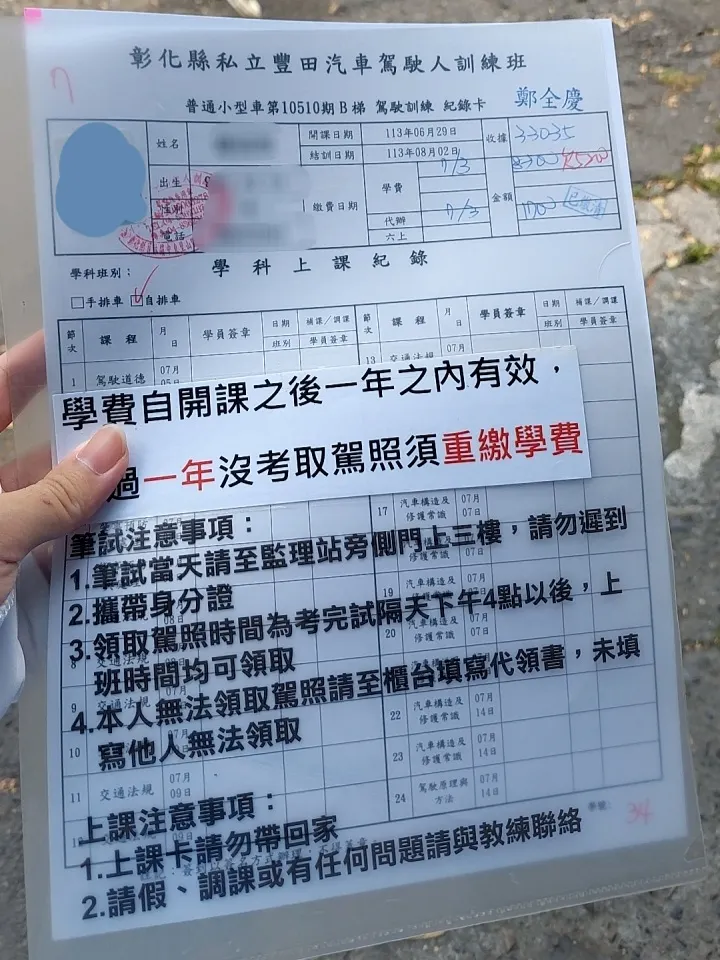 彰化縣私立豐田汽車駕駛人訓練班
普通小型車第10510期 B 梯 駕駛訓練 紀錄卡
鄭全慶
姓名
開課日期 113年06月29日 收據 33035
結訓日期 113年08月02日
出生
學費 7/3
繳費日期 金額
性別
代辦 7/3 1700
電話
六上
學科上課紀錄
學科班別：
□手排車 □自排車
節次 課程 月日 學員簽章 日期班別 補課／調課學員簽章 節次 課程 月日 學員簽章 日期班別 補課／調課學員簽章
1 駕駛道德 07月 13 交通法規 07月
學費自開課之後一年之內有效，
過一年沒考取駕照須重繳學費
17 汽車構造及修護常識 07月07日
筆試注意事項：
1.筆試當天請至監理站旁側門上三樓，請勿遲到
2.攜帶身分證
19 汽車構造及修護常識 07月07日
3.領取駕照時間為考完試隔天下午4點以後，上
班時間均可領取
20 07日
4.本人無法領取駕照請至櫃台填寫代領書，未填
寫他人無法領取
9 交通法規
22 汽車構造及修護常識 07月14日
10
23 汽車構造及修護常識 07月14日
11 交通法規 07月09日
24 駕駛原理與方法 07月14日
上課注意事項：
1.上課卡請勿帶回家
2.請假、調課或有任何問題請與教練聯絡
學號： 34